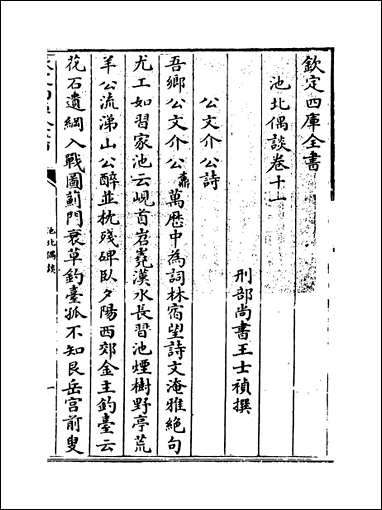 欽定四庫全書
池北偶談卷十一
刑部尚書王士禎撰
公文介公詩
吾鄉公文介公鼐萬歷中為詞林宿望詩文淹雅絶句
尤工如習家池云峴首岧嶤漢水長習池煙樹野亭荒
羊公流涕山公醉並枕殘碑臥夕陽西郊金主釣臺云
花石遺綱入戰圖薊門衰草釣臺孤不知艮岳宮前叟
池北偶談
一